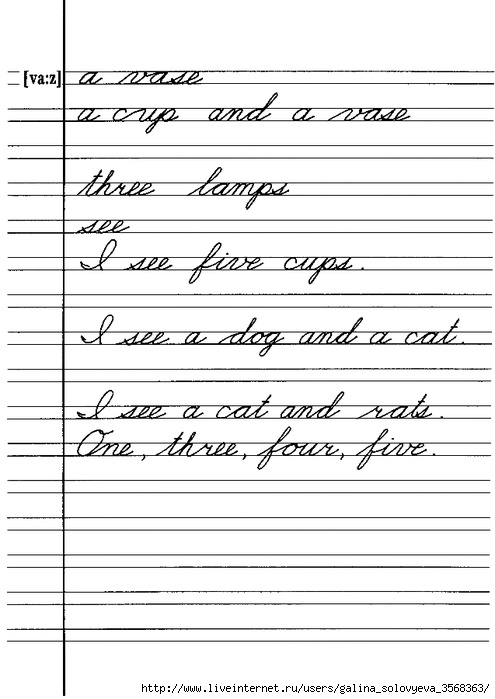 [va:z] a vase
a cup and a vase
three lamps
see
I see five cups.
I see a dog and a cat.
I see a cat and rats.
One, three, four, five.
http://www.liveinternet.ru/users/galina_solovyeva_3568363/